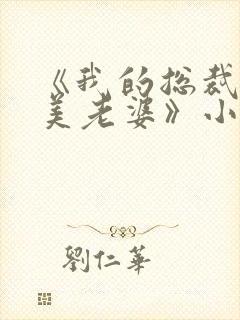 《我的总裁
美老婆》小
劉仁華